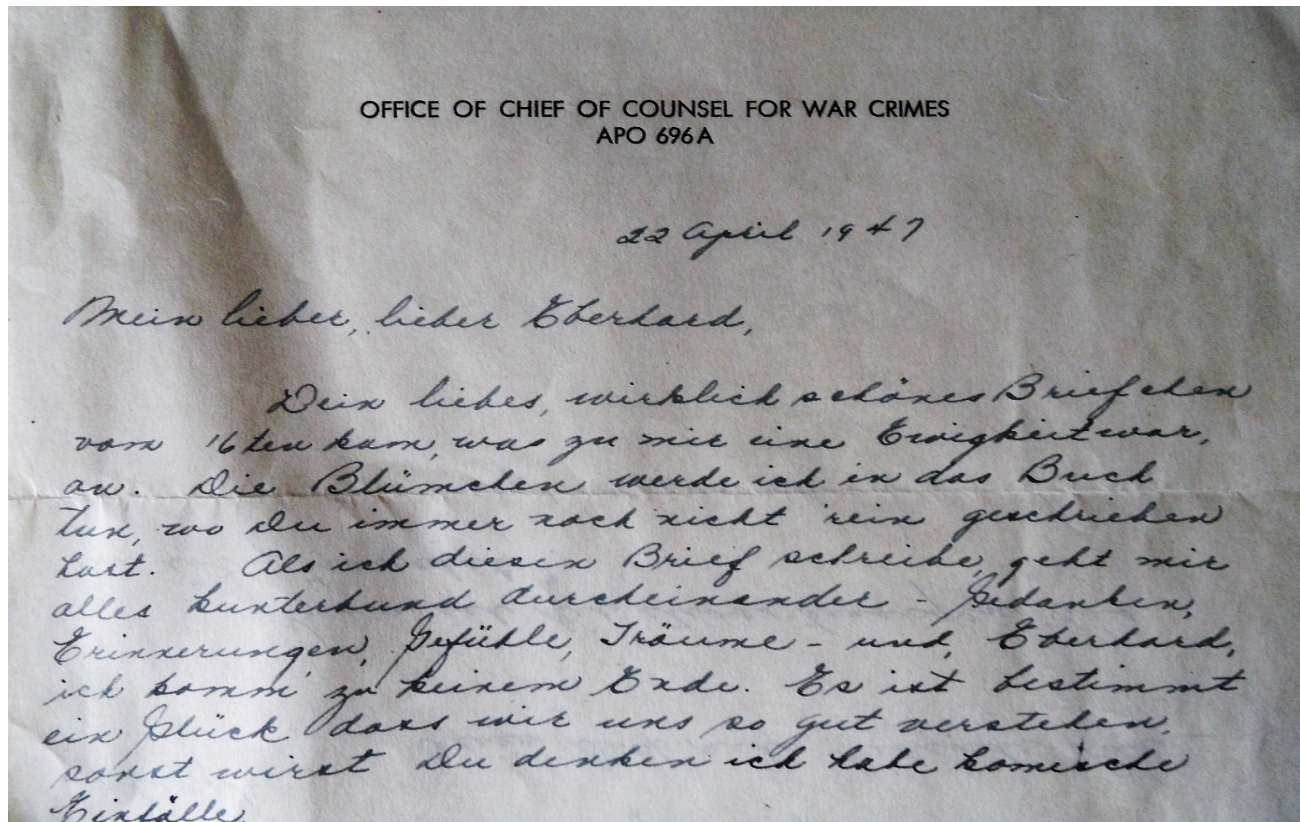 OFFICE OF CHIEF OF COUNSEL FOR WAR CRIMES
APO 696A
22 April 1947
Mein lieber, lieber Eberhard,
Dein liebes, wirklich schönes Briefchen
vom 16ten kam, was zu mir eine Ewigkeit war,
an. Die Blümchen werde ich in das Buch
tun, wo Du immer noch nicht rein geschrieben
hast. Als ich diesen Brief schreibe, geht mir
alles kunterbund durcheinander - Gedanken,
Erinnerungen, Gefühle, Träume - und, Eberhard,
ich komm' zu keinem Ende. Es ist bestimmt
ein Glück dass wir uns so gut verstehen,
sonst wirst Du denken ich habe komische
Einfälle.